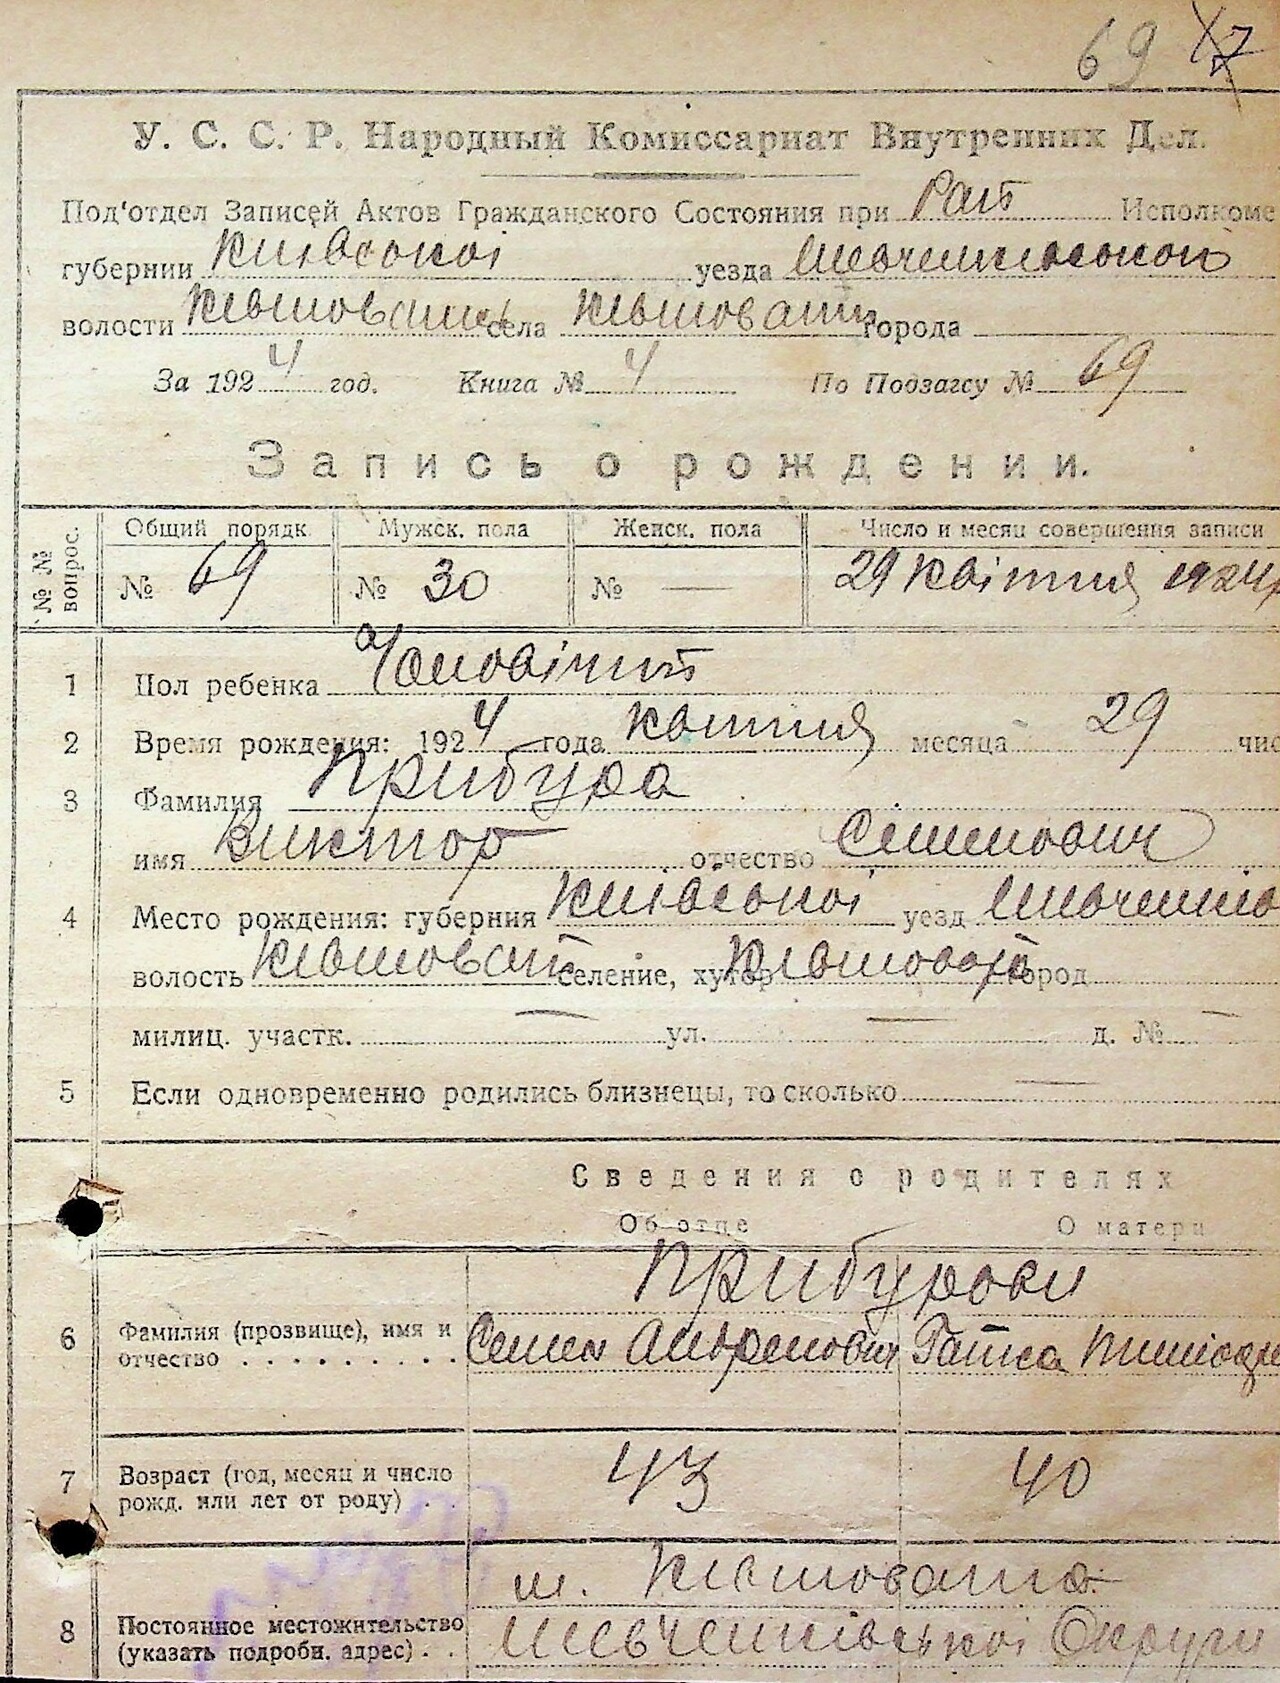 69
У. С. С. Р. Народный Комиссариат Внутренних Дел.
Под'отдел Записей Актов Гражданского Состояния при Рай Исполкоме
губернии Київської уезда Шевченківської
волости Ківшовати села Ківшовати города
За 1924 год. Книга № 4 По Подзагсу № 69
Запись о рождении.
№ № вопрос. Общий порядк Мужск. пола Женск. пола Число и месяц совершения записи
№ 69 № 30 № — 29 Квітня 1924
1 Пол ребенка Чоловічий
2 Время рождения: 1924 года Квітня месяца 29 чис
3 Фамилия Прибура
имя Виктор отчество Семенович
4 Место рождения: губерния Київської уезд Шевченків
волость Ківшоват селение, хутор Ківшоват город
милиц. участк. — ул. — д. № —
5 Если одновременно родились близнецы, то сколько —
Сведения о родителях
Об отце О матери
Прибурови
6 Фамилия (прозвище), имя и Семен Андреевич
отчество
7 Возраст (год, месяц и число 43 40
рожд. или лет от роду)
м. Ківшовата
8 Постоянное местожительство Шевченківської Округи
(указать подробн. адрес)